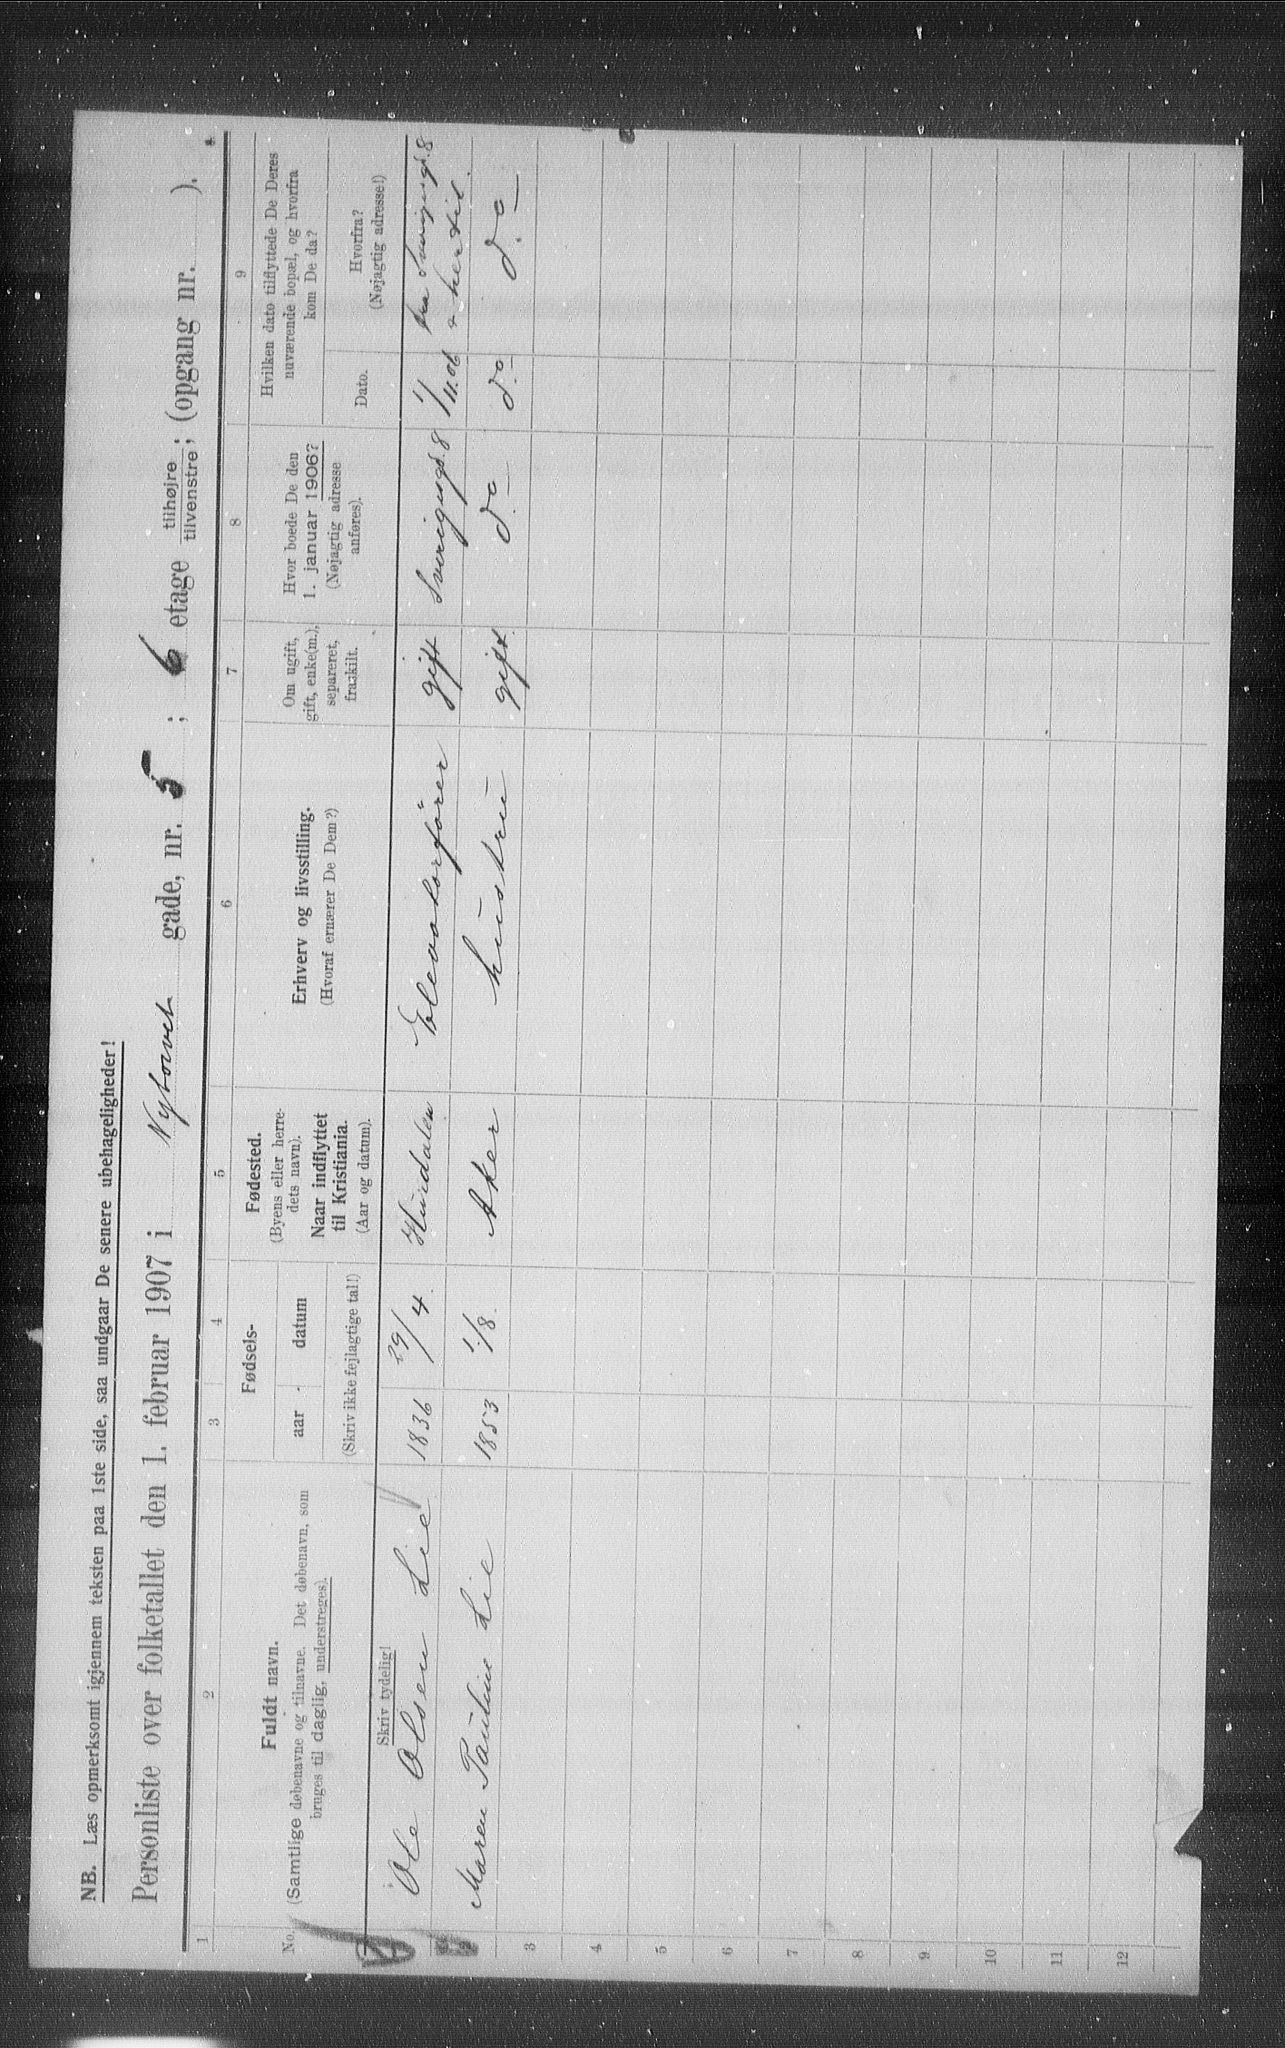 NB. Læs opmerksomt igjennem teksten paa 1ste side, saa undgaar De senere ubehageligheder!
Personliste over folketallet den 1. februar 1907 i Nytorvet gade, nr. 5 ; 6 etage tilhøjre / tilvenstre ; (opgang nr. ).
1 2 3 4 5 6 7 8 9
No. Fuldt navn.
(Samtlige døbenavne og tilnavne. Det døbenavn, som
bruges til daglig, understreges).
Skriv tydelig!
Fødsels-
aar - datum
(Skriv ikke fejlagtige tal!)
Fødested.
(Byens eller herre-
dets navn).
Naar indflyttet
til Kristiania.
(Aar og datum).
Erhverv og livsstilling.
(Hvoraf ernærer De Dem?)
Om ugift,
gift, enke(m.),
separeret,
fraskilt.
Hvor boede De den
1. januar 1906?
(Nøjagtig adresse
anføres).
Hvilken dato tilflyttede De Deres
nuværende bopæl, og hvorfra
kom De da?
Dato.
Hvorfra?
(Nøjagtig adresse!)
Ole Olsen Lie 1836 29/4. Hurdalen Elevatorfører gift Sverigesgd. 8 1/11.06 fra Sverigesgd. 8
hertil.
2 Maren Pauline Lie 1853 1/8. Aker hustru gift. do do do
3
4
5
6
7
8
9
10
11
12